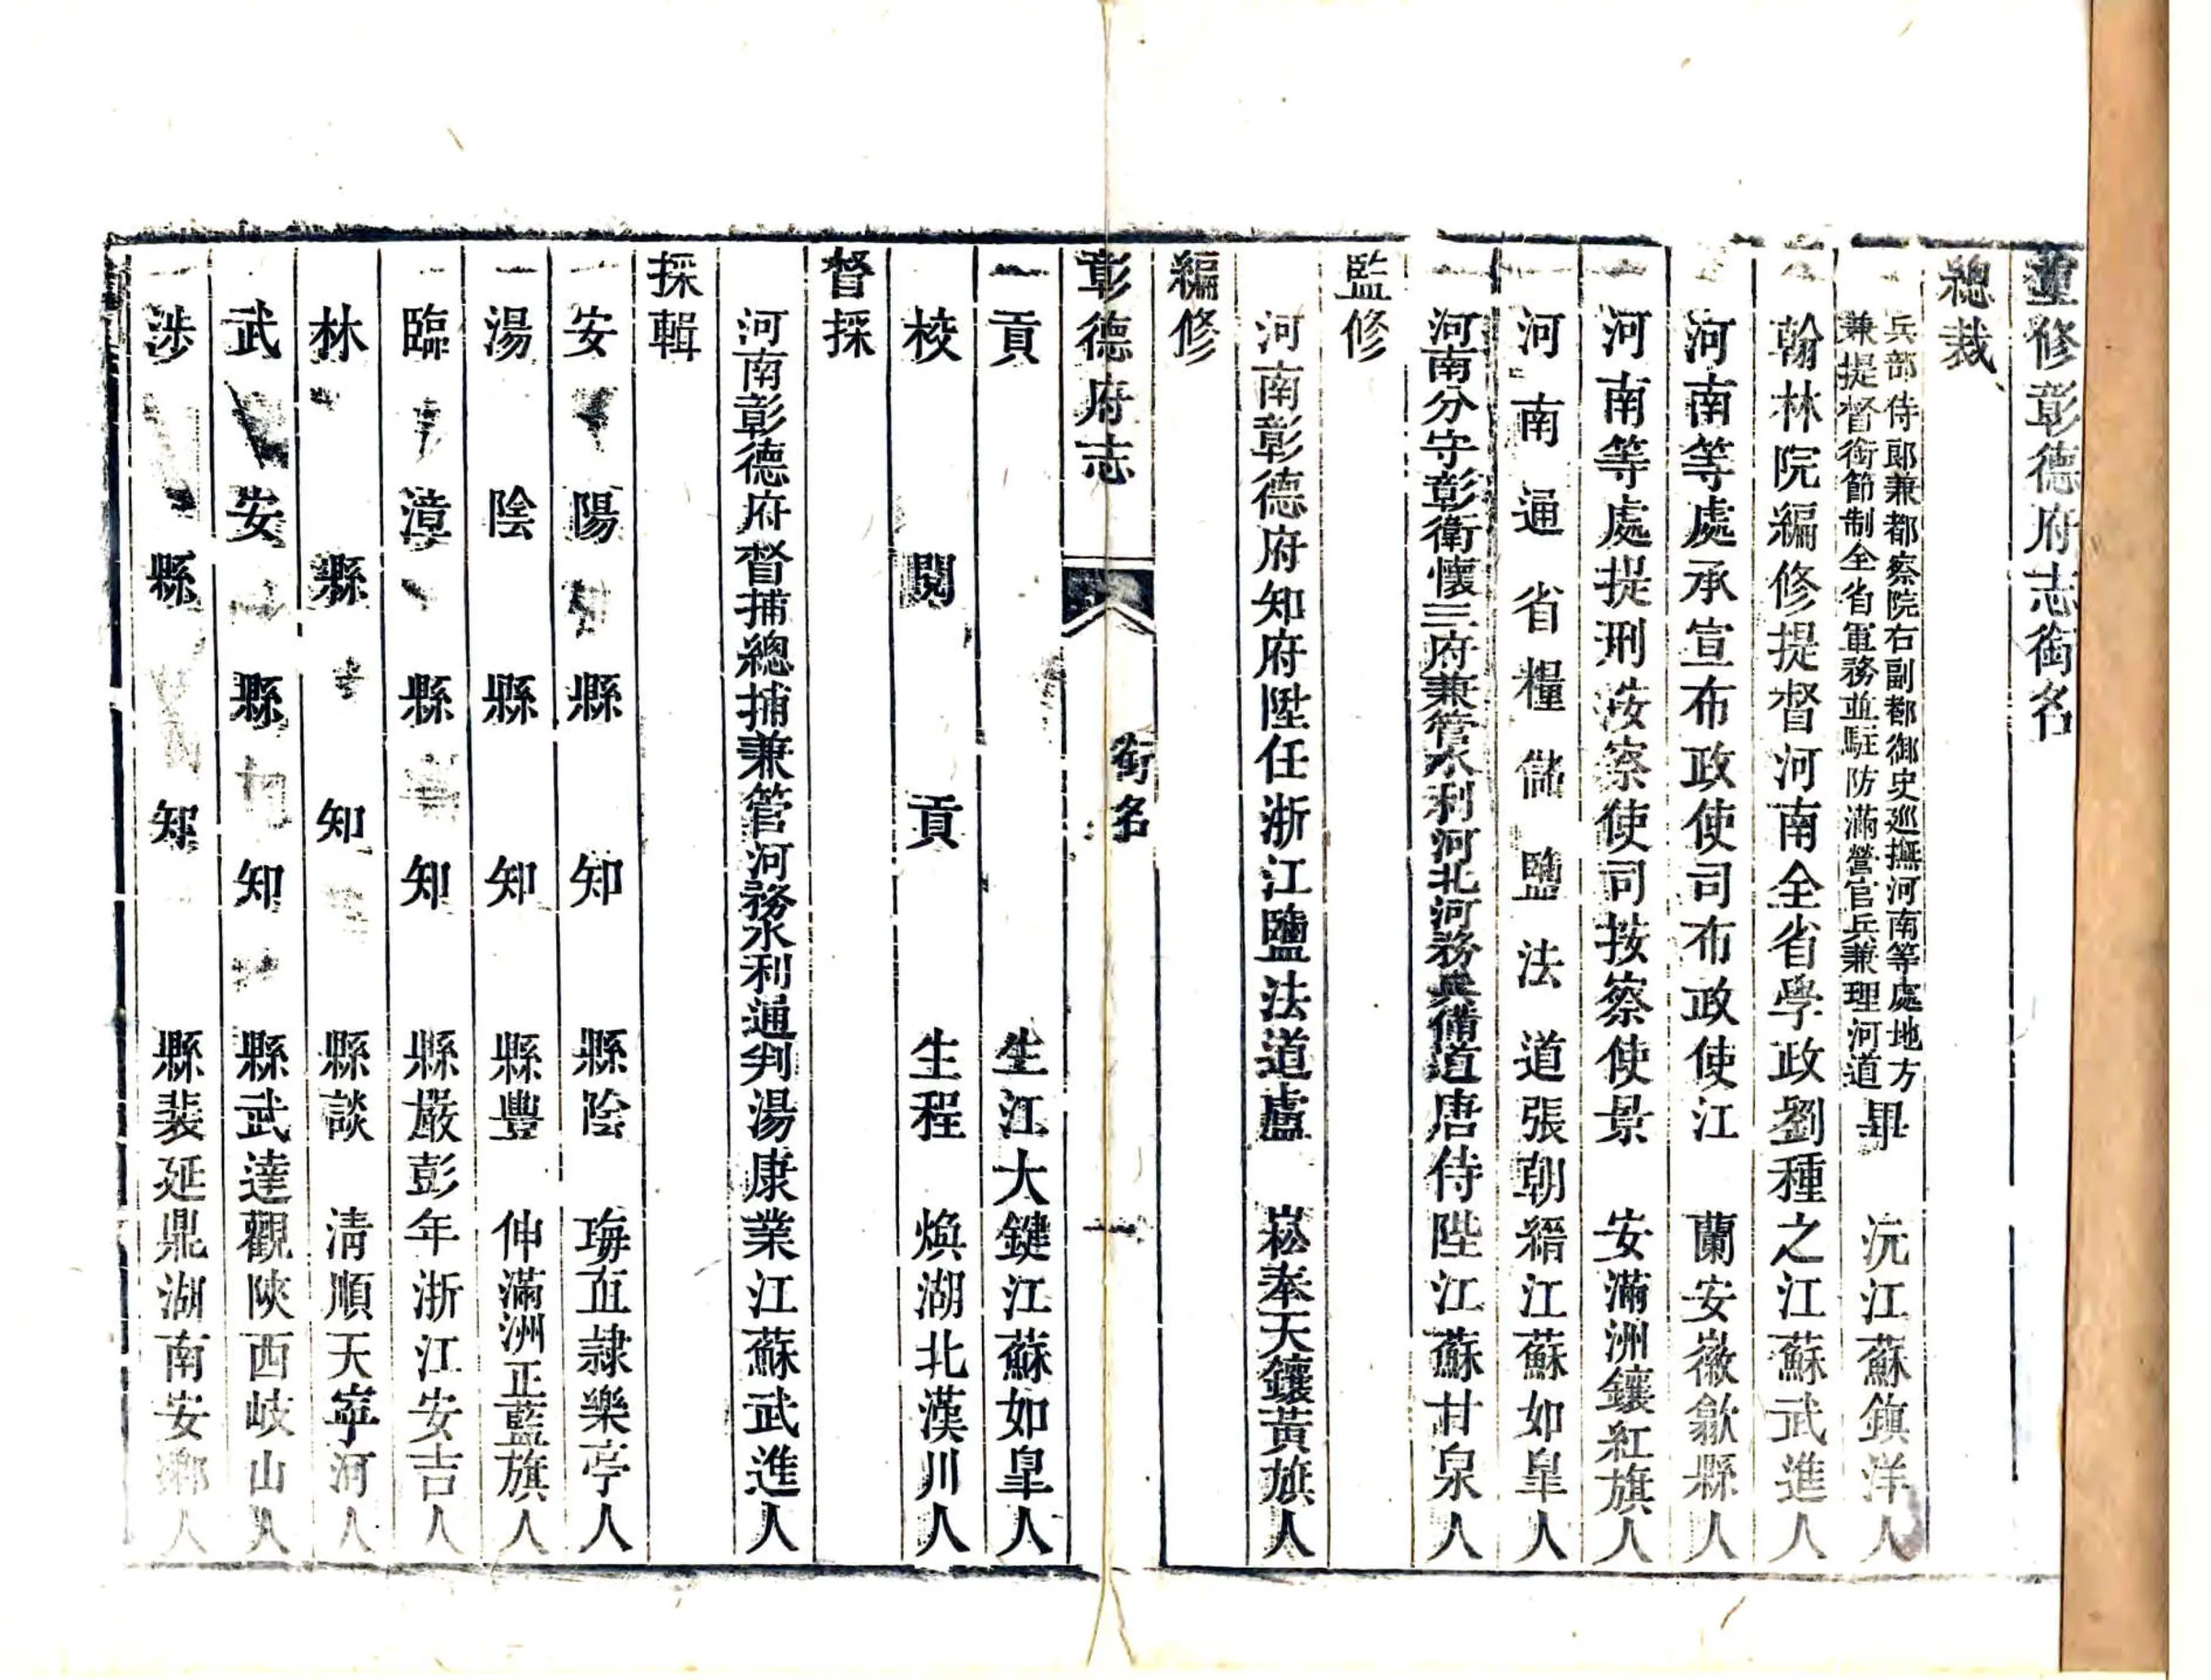 重修彰德府志銜名
總裁
兵部侍郎兼都察院右副都御史巡撫河南等處地方
兼提督銜節制全省軍務並駐防滿營官兵兼理河道
畢沅江蘇鎮洋人
翰林院編修提督河南全省學政劉種之江蘇武進人
河南等處承宣布政使司布政使江蘭安徽歙縣人
河南等處提刑按察使司按察使景安滿洲鑲紅旗人
河南通省糧儲鹽法道張朝縉江蘇如皐人
河南分守彰衛懷三府兼管水利河北河務兵備道唐侍陛江蘇甘泉人
監修
河南彰德府知府陞任浙江鹽法道盧崧奉天鑲黃旗人
編修
彰德府志 銜名 一
貢生江大鍵江蘇如皐人
校閱貢生程煥湖北漢川人
督採
河南彰德府督捕總捕兼管河務水利通判湯康業江蘇武進人
採輯
安陽縣知縣陰直隸樂亭人
湯陰縣知縣豐伸滿洲正藍旗人
臨漳縣知縣嚴彭年浙江安吉人
林縣知縣談清順天寧河人
武安縣知縣武達觀陝西岐山人
涉縣知縣裴延鼎湖南安鄉人